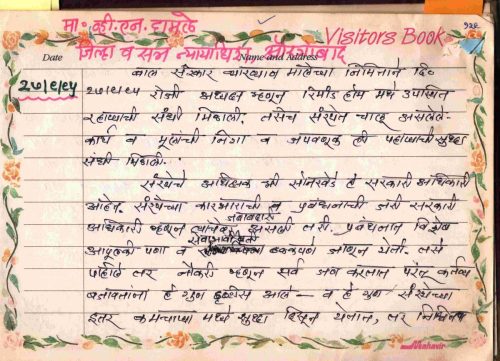 मा. व्ही. एन. दामले १२८
Visitors Book
जिल्हा व सत्र न्यायाधिश औरंगाबाद
Date Name and Address
बाल संस्कार व्याख्यान मालेच्या निमित्ताने दि.
२७/९/९५
२७/९/९५ रोजी अध्यक्ष म्हणून रिमांड होम मधे उपस्थित
रहाण्याची संधी मिळाली. तसेच संस्थेत चालू असलेले
कार्य व मुलांची निगा व जपवणूक ही पहाण्याची सुध्दा
संधी मिळाली.
संस्थेचे अधिक्षक श्री सोनखेडे हे सरकारी अधिकारी
आहेत. संस्थेच्या कारभाराची व प्रबंधनाची जरी सरकारी
जबाबदारी
अधिकारी म्हणून त्यांचेवर असली तरी. प्रबंधनात विशेष
सेवाभावी वृत्ती
आपुलकी पणा व हळवेपणे जाणून येती. तसे
पाहिले तर नौकरी म्हणून सर्व जण करतात परंतु कर्तव्य
बजावतांना हे गुण दृष्टीस आले — व हे गुण संस्थेच्या
इतर कर्मचाऱ्या मध्ये सुध्दा दिसून येतात, तर निश्चितच
Mahavir